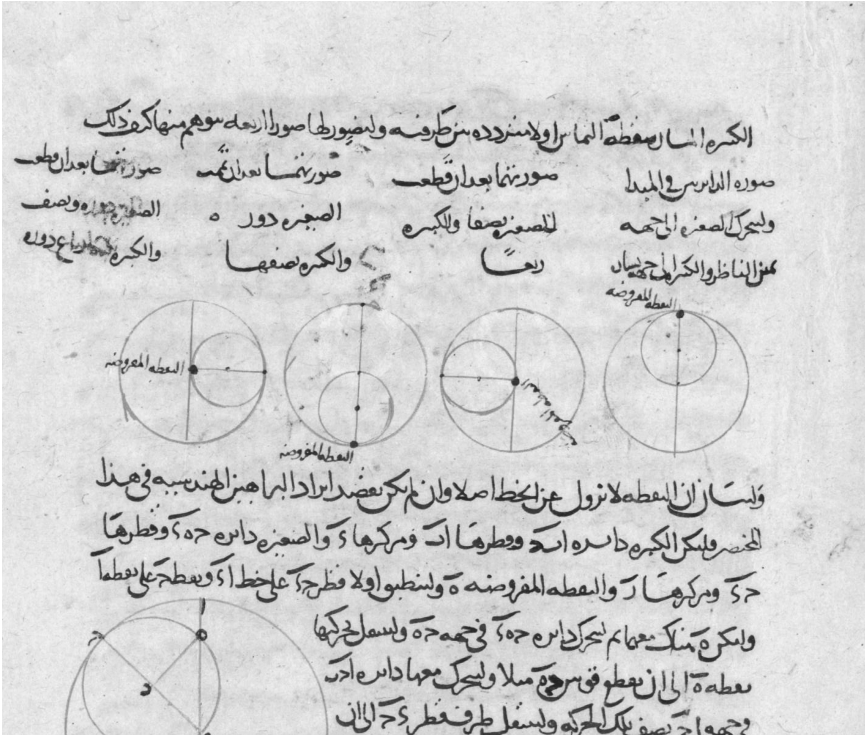 الكبيرة المار بنقطة التماس اولا مترددة بين طرفيه ولنصور لها صورا اربعه يتوهم منها كيف ذلك
صوره الدائرتين في المبدا
ولتتحرك الصغيره الى جهه
يمين الناظر والكبيرة الى جهه يساره
صورتهما بعد ان قطعت
الصغيره نصفا والكبيره
ربعا
صورتهما بعد ان تمت
الصغيره دوره
والكبيره نصفها
صورتهما بعد ان قطعت
الصغيره دوره ونصف
والكبيره ارباع دوره
النقطه المفروضه
النقطه المفروضه
النقطه المفروضه
النقطه المفروضه
ولبيان ان النقطه لا تزول عن الخط اصلا وان لم يكن بقصد ايراد البراهين الهندسيه في هذا
المختصر ولتكن الكبيره دائره اب وقطرها اب ومركزها ء والصغيره دائره جهء وقطرها
جء ومركزها ر والنقطه المفروضه ه ولينطبق اولا قطر جء على خط اء ونقطه ج على نقطه ا
ولتكن ه هناك معهما ثم لتتحرك دائره جهء في جهه جه ولتنتقل بحركتها
نقطه ه الى ان تقطع قوس جه مثلا ولتتحرك معها دائره اب
في جهه اج نصف تلك الحركه ولينتقل طرف قطر جء الى ان